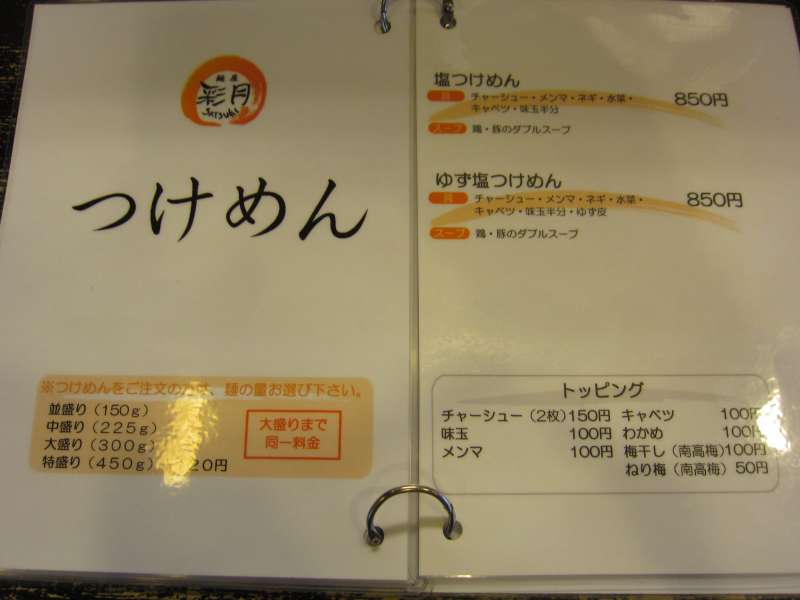 麺屋
彩月
SATSUKI
つけめん
※つけめんをご注文の方は、麺の量お選び下さい。
並盛り（150g）
中盛り（225g）
大盛り（300g）
特盛り（450g） 20円
大盛りまで
同一料金
塩つけめん 850円
具 チャーシュー・メンマ・ネギ・水菜・
キャベツ・味玉半分
スープ 鶏・豚のダブルスープ
ゆず塩つけめん 850円
具 チャーシュー・メンマ・ネギ・水菜・
キャベツ・味玉半分・ゆず皮
スープ 鶏・豚のダブルスープ
トッピング
チャーシュー（2枚）150円 キャベツ 100円
味玉 100円 わかめ 100円
メンマ 100円 梅干し（南高梅）100円
ねり梅（南高梅）50円